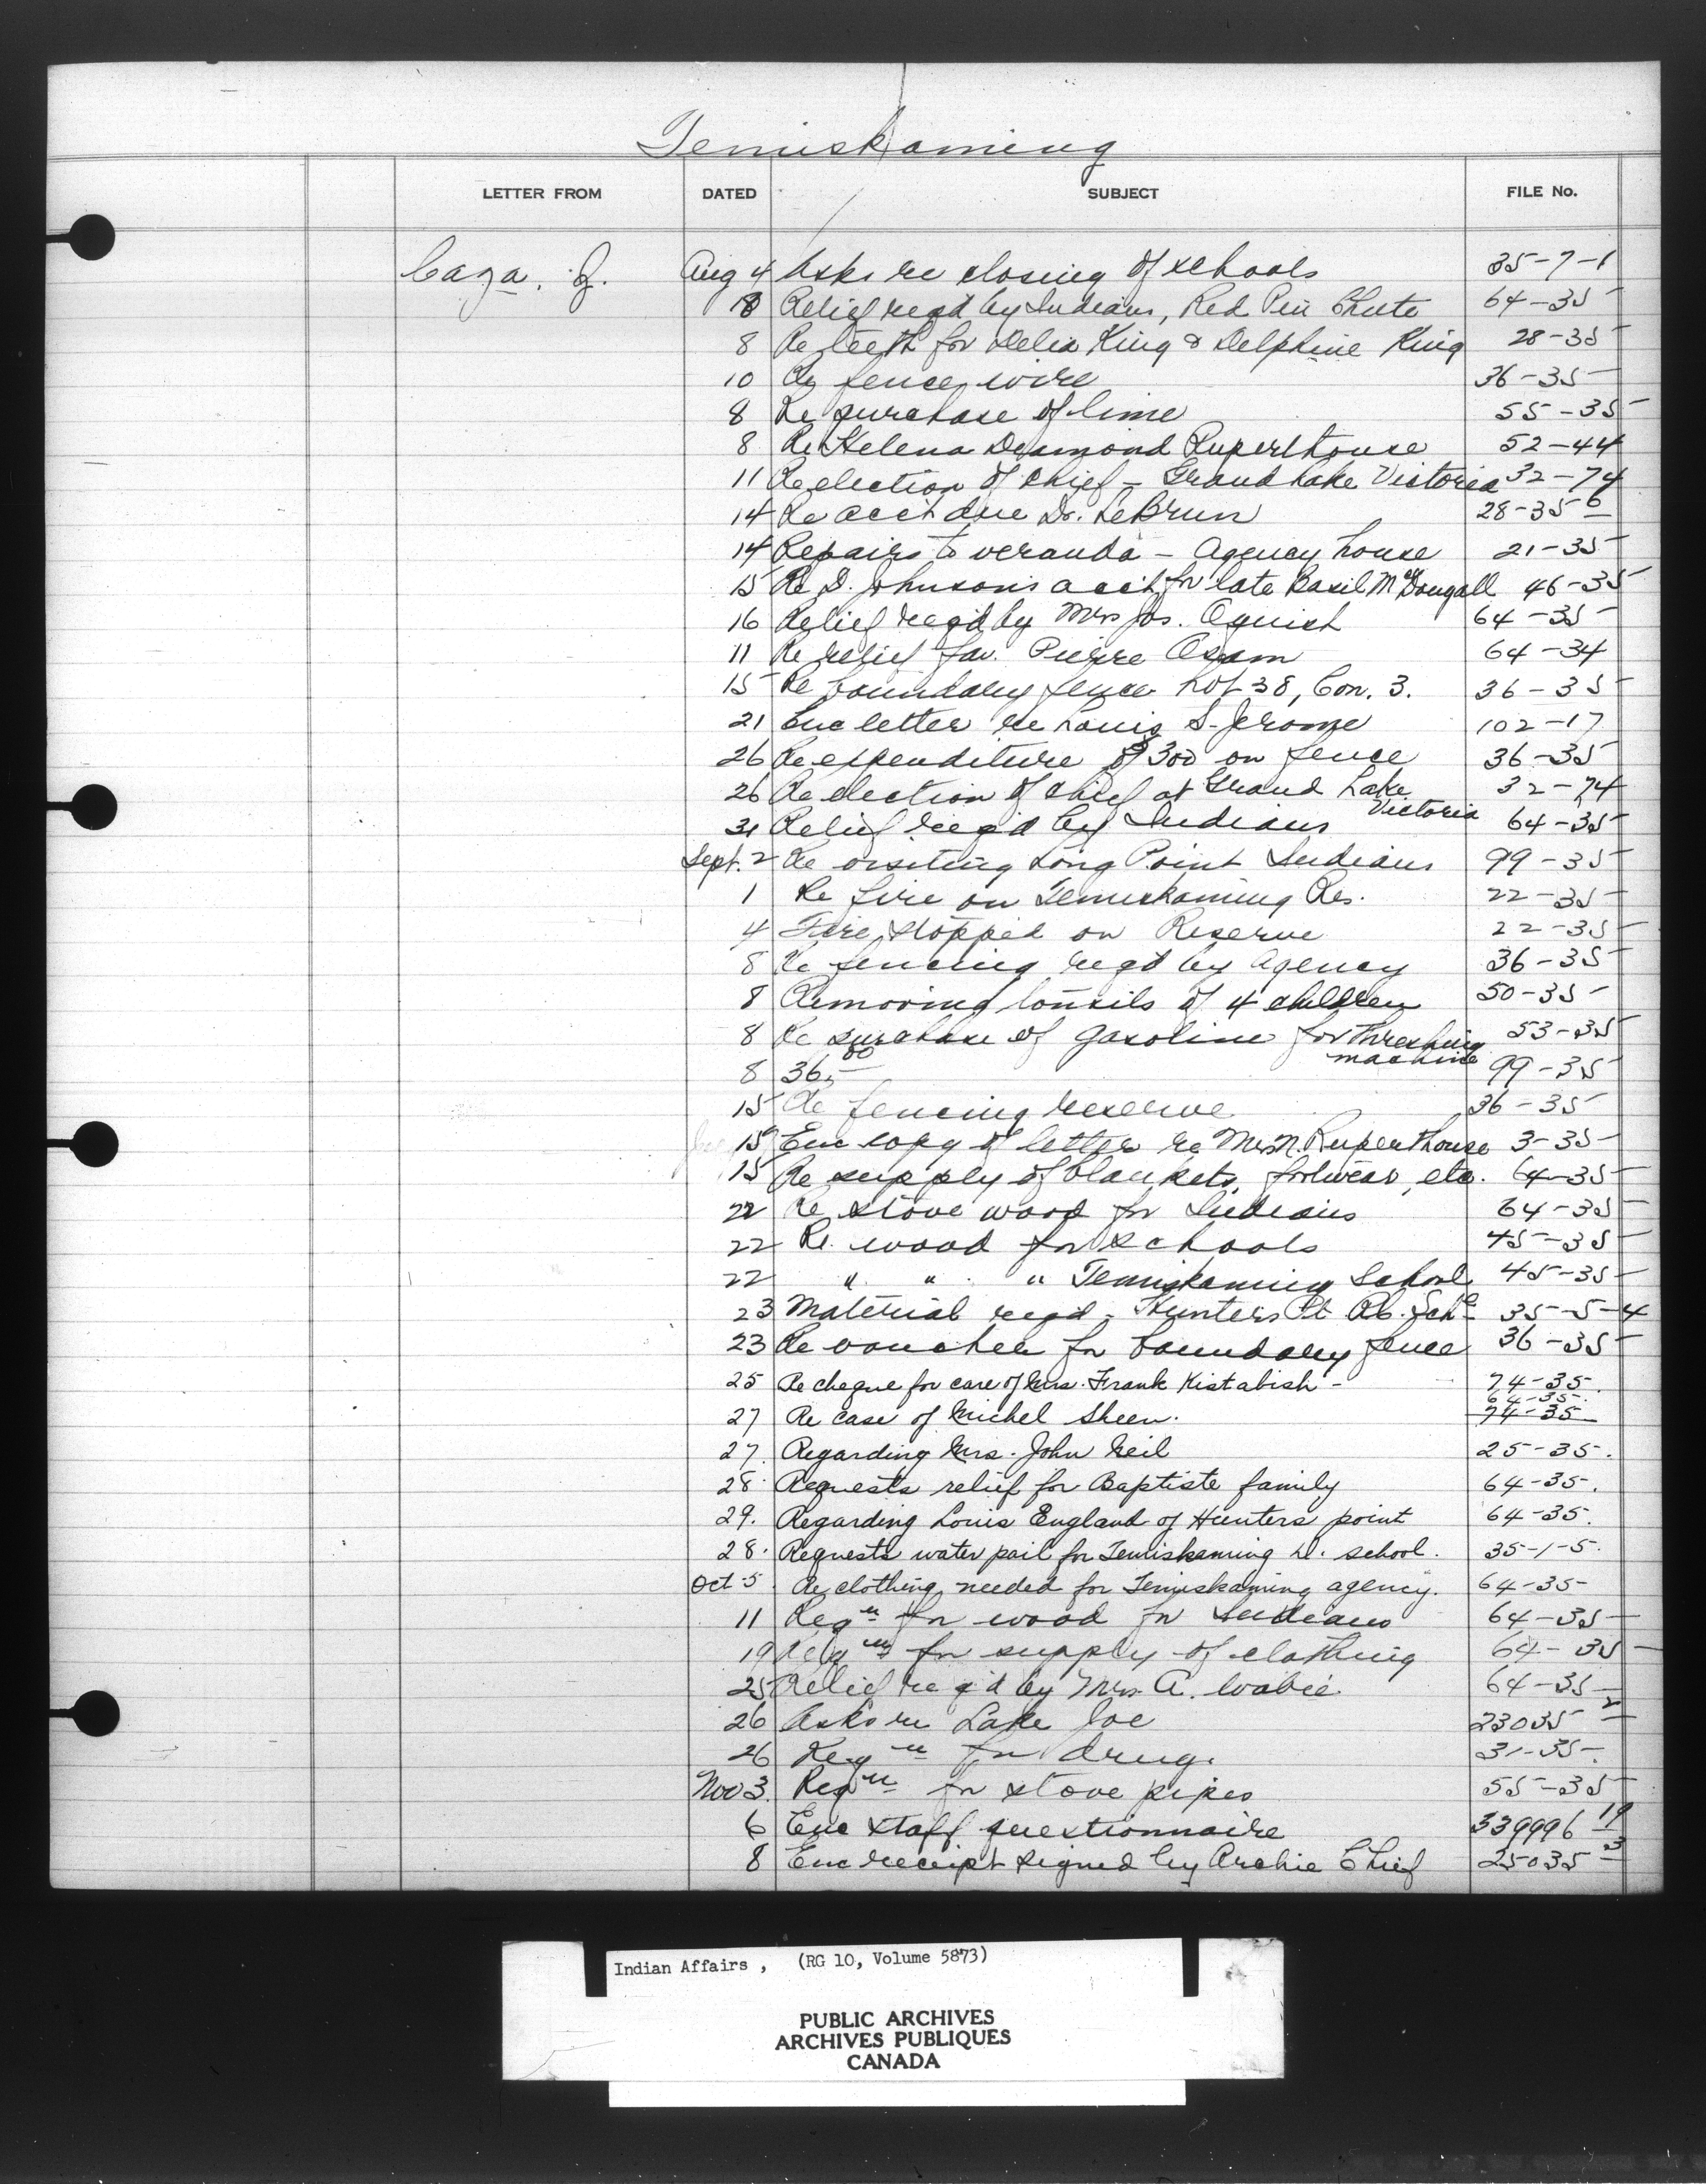 Temiskaming
LETTER FROM DATED SUBJECT FILE No.
Caza, Z. Aug 4 Asks re closing of schools 35-7-1
8 Relief reqd by Indians, Red Pin Chute 64-35
8 Re teeth for Delia King & Delphine King 28-35
10 Re fence wire 36-35
8 Re purchase of lime 55-35
8 Re Helena Desmond Ruperthouse 52-44
11 Re election of Chief - Grand Lake Victoria 32-74
14 Re acct due Dr. LeBrun 28-35 6
14 Repairs to veranda - Agency house 21-35
15 Re D. Johnson's acct for late Basil McDougall 46-35
16 Relief reqd by Mrs Jos. 64-35
11 Re relief fav. Pierre 64-34
15 Re boundary fence Lot 38, Con. 3. 36-35
21 Enc letter re Louis S. Jerome 102-17
26 Re expenditure of $300 on fence 36-35
26 Re election of chief at Grand Lake Victoria 32-74
31 Relief req'd by Indians 64-35
Sept. 2 Re visiting Long Point Indians 99-35
1 Re fire on Temiskaming Res. 22-35
4 Fire stopped on Reserve 22-35
8 Re fencing reqd by Agency 36-35
8 Removing tonsils of 4 children 50-35
8 Re purchase of gasoline for threshing machine 53-35
8 36.00 99-35
15 Re fencing reserve 36-35
15 Enc copy of letter re Mrs N. Ruperthouse 3-35
15 Re supply of blankets, footwear, etc. 64-35
22 Re stove wood for Indians 64-35
22 Re. wood for schools 45-35
22 " " " Temiskaming School 45-35
23 Material reqd - Hunters Pt Rb. Schl 35-5-4
23 Re voucher for boundary fence 36-35
25 Re cheque for care of Mrs. Frank Kistabish - 74-35.
64-35-.
27 Re case of Michel Sheen. 74-35
27. Regarding Mrs. John Neil 25-35.
28. Requests relief for Baptiste family 64-35.
29. Regarding Louis England of Hunters point 64-35.
28. Requests water pail for Temiskaming D. school. 35-1-5.
Oct 5. Re clothing needed for Temiskaming agency. 64-35-
11 Reqn for wood for Indians 64-35
19 Reqn for supply of clothing 64-35
25 Relief req'd by Mrs A. Wabie 64-35
26 Asks re Lake Joe 23035 2
26 Reqn for drugs 31-35-.
Nov 3. Reqn for stove pipes 55-35
6 Enc staff questionnaire 339996 19
8 Enc receipt signed by Archie Chief 25035 3
Indian Affairs , (RG 10, Volume 5873)
PUBLIC ARCHIVES
ARCHIVES PUBLIQUES
CANADA